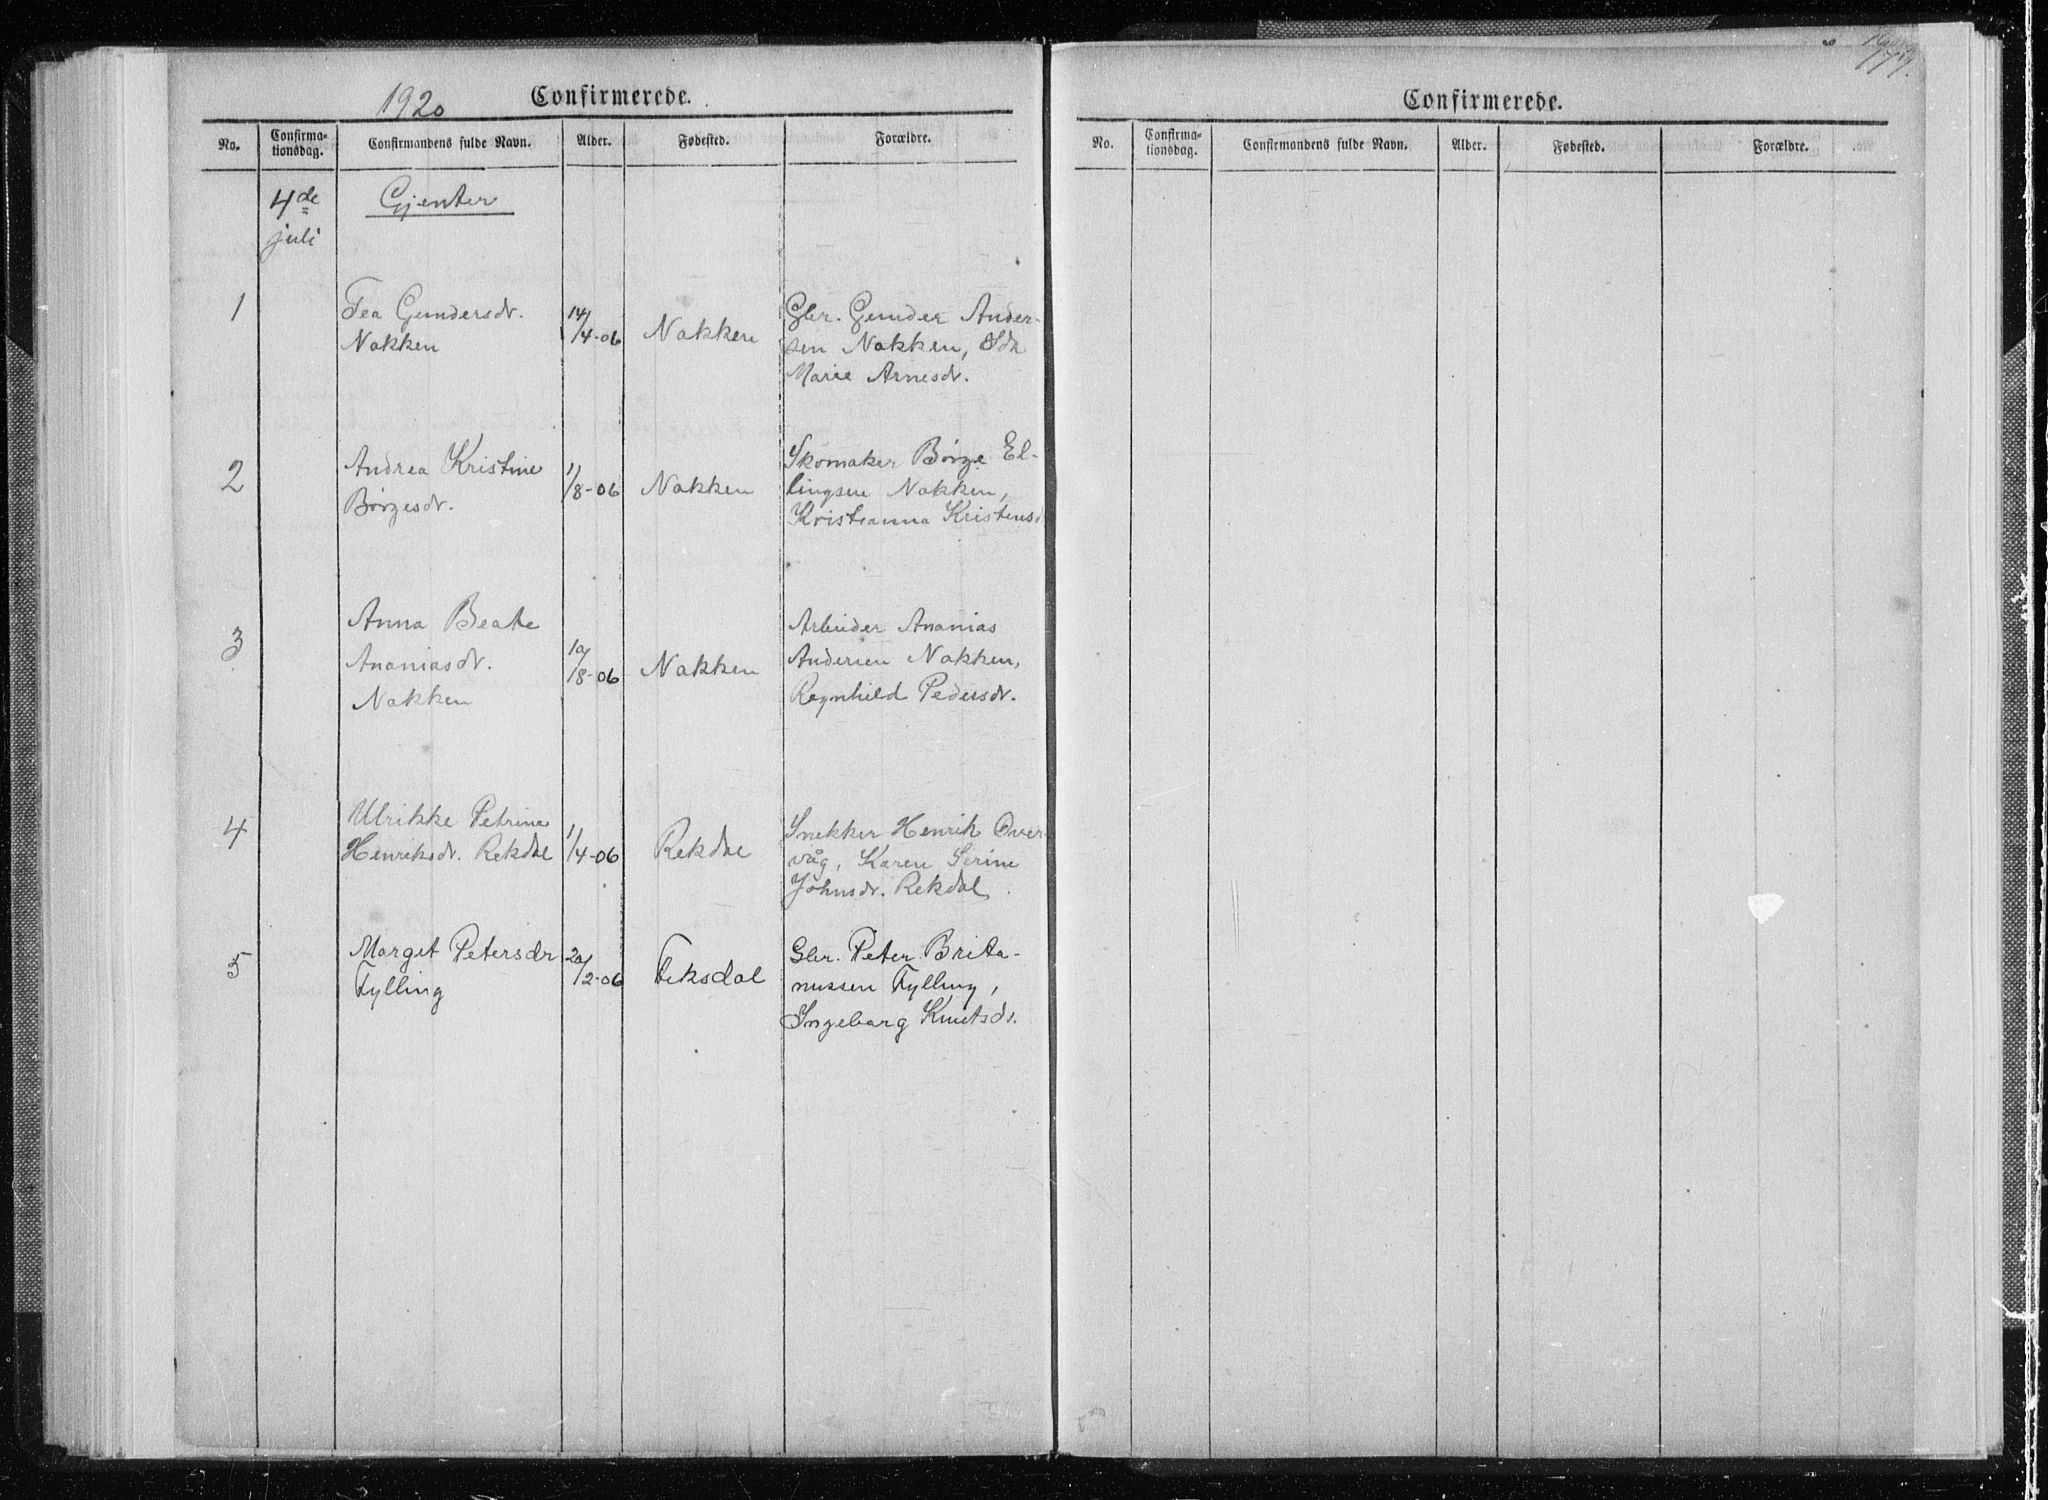 1920
Confirmerede.
No.
Confirma-
tionsdag.
Confirmandens fulde Navn.
Alder.
Fødested.
Forældre.
4de
juli
Gjenter
1
Tea Gundersdr.
Nakken
14/4-06
Nakken
Gbr. Gunder Ander-
sen Nakken, Ida
Marie Arnesdr.
2
Andrea Kristine
Børgesdr.
1/8-06
Nakken
Skomaker Børge El-
lingsen Nakken,
Kristianna Kristensd
3
Anna Beate
Ananiasdr.
Nakken
10/8-06
Nakken
Arbeider Ananias
Andersen Nakken,
Ragnhild Pedersdr.
4
Ulrikke Petrine
Henriksdr. Rekdal
1/4-06
Rekdal
Snekker Henrik Over-
våg, Karen Sirine
Johnsdr. Rekdal
5
Marget Petersdr
Fylling
20/2-06
Teksdal
Gbr. Peter Brita-
nussen Fylling,
Ingeborg Knutsdr.
Confirmerede.
No.
Confirma-
tionsdag.
Confirmandens fulde Navn.
Alder.
Fødested.
Forældre.